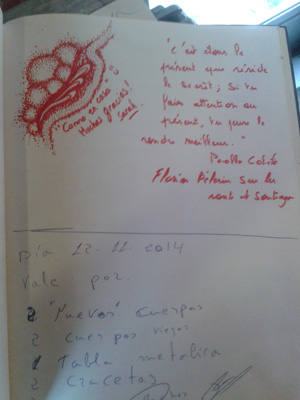 "Como en casa"
Muchas gracias!
Sarah
"c'est dans le
présent que réside
le secret; Si tu
fais attention au
présent, tu peux le
rendre meilleur."
Paolo
Florian Pèlerin sur la
route et Santiago
Día 12-11-2014
Vale por
2 "Nuevos" cuerpos
2 cuerpos viejos
1 Tabla metalica
2 Crucetas
2